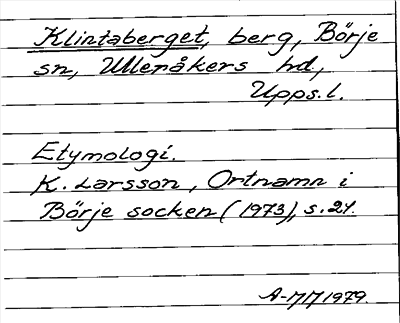 Klintaberget, berg, Börje
sn, Ulleråkers hd,
Upps. l.
Etymologi.
K. Larsson, Ortnamn i
Börje socken (1973), s. 24.
A-MM 1979.